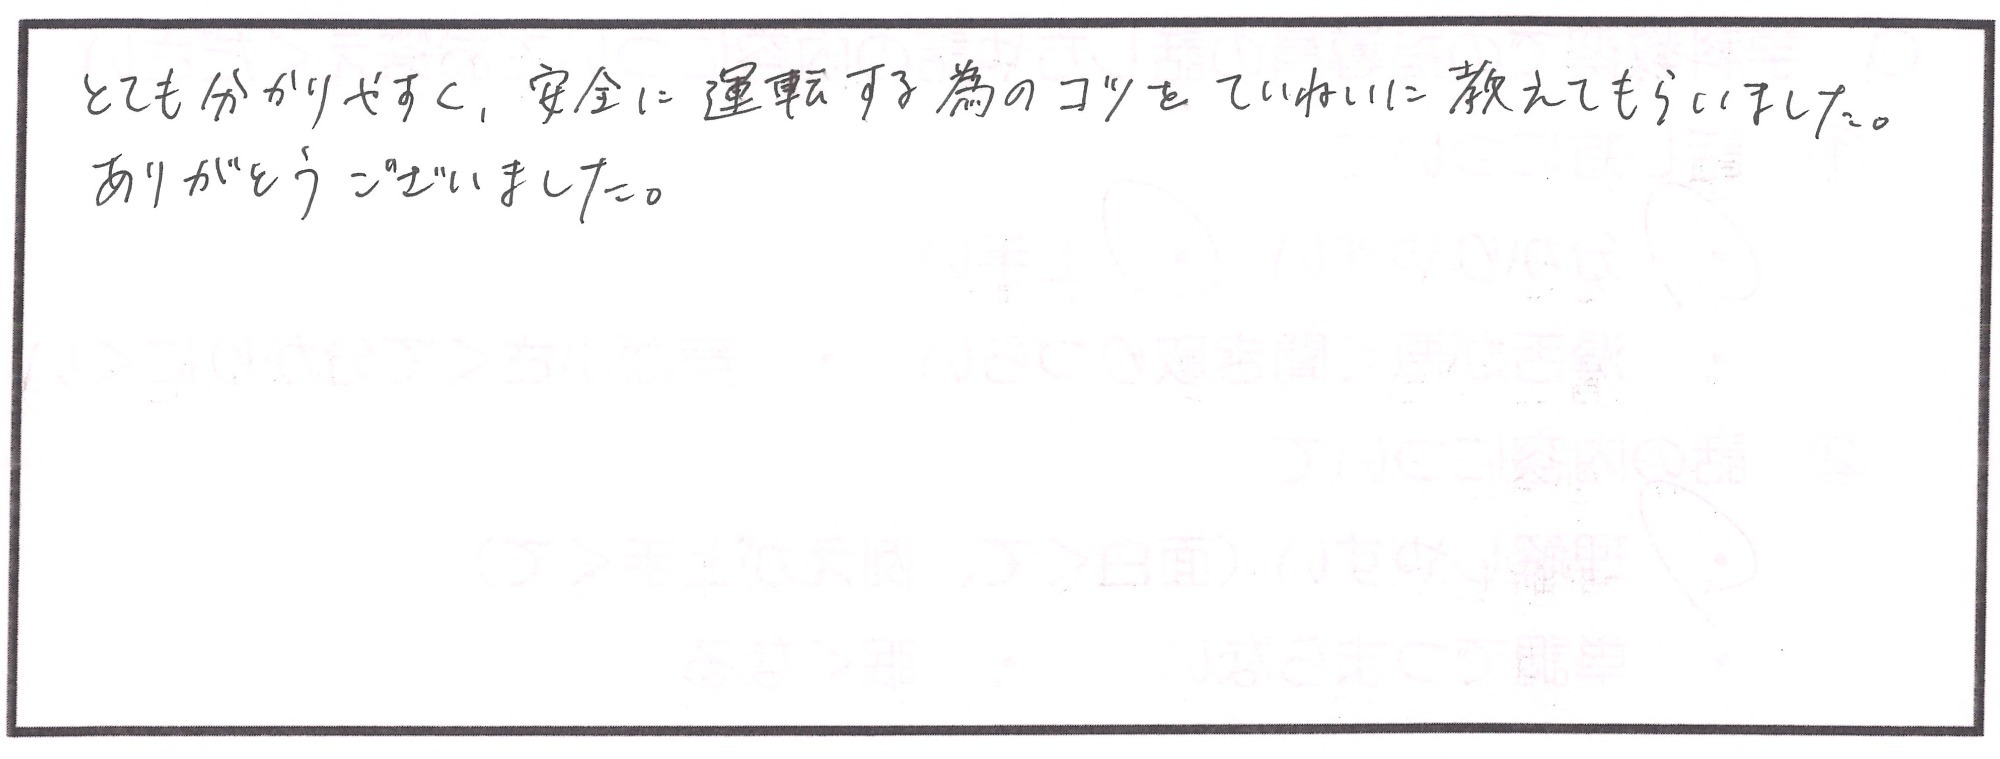 とても分かりやすく、安全に運転する為のコツをていねいに教えてもらいました。
ありがとうございました。